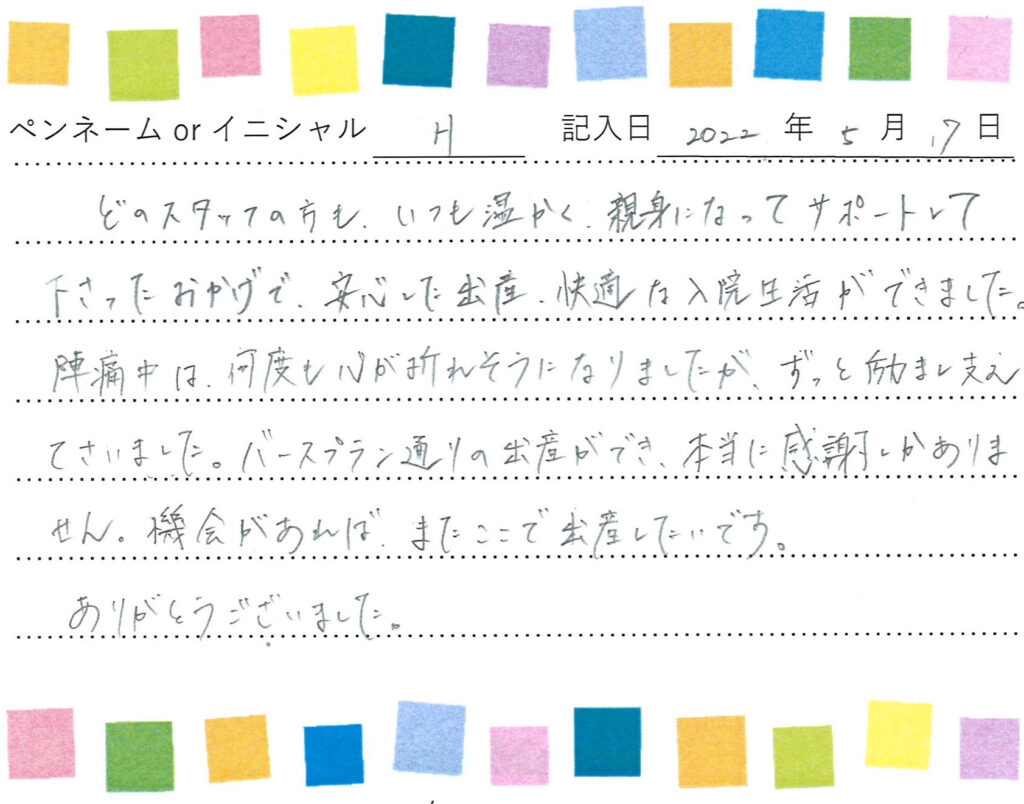 ペンネーム or イニシャル H 記入日 2022 年 5 月 17 日
どのスタッフの方も、いつも温かく、親身になってサポートして
下さったおかげで、安心した出産、快適な入院生活ができました。
陣痛中は、何度も心が折れそうになりましたが、ずっと励まし支え
てさいました。バースプラン通りの出産ができ、本当に感謝しかありま
せん。機会があれば、またここで出産したいです。
ありがとうございました。